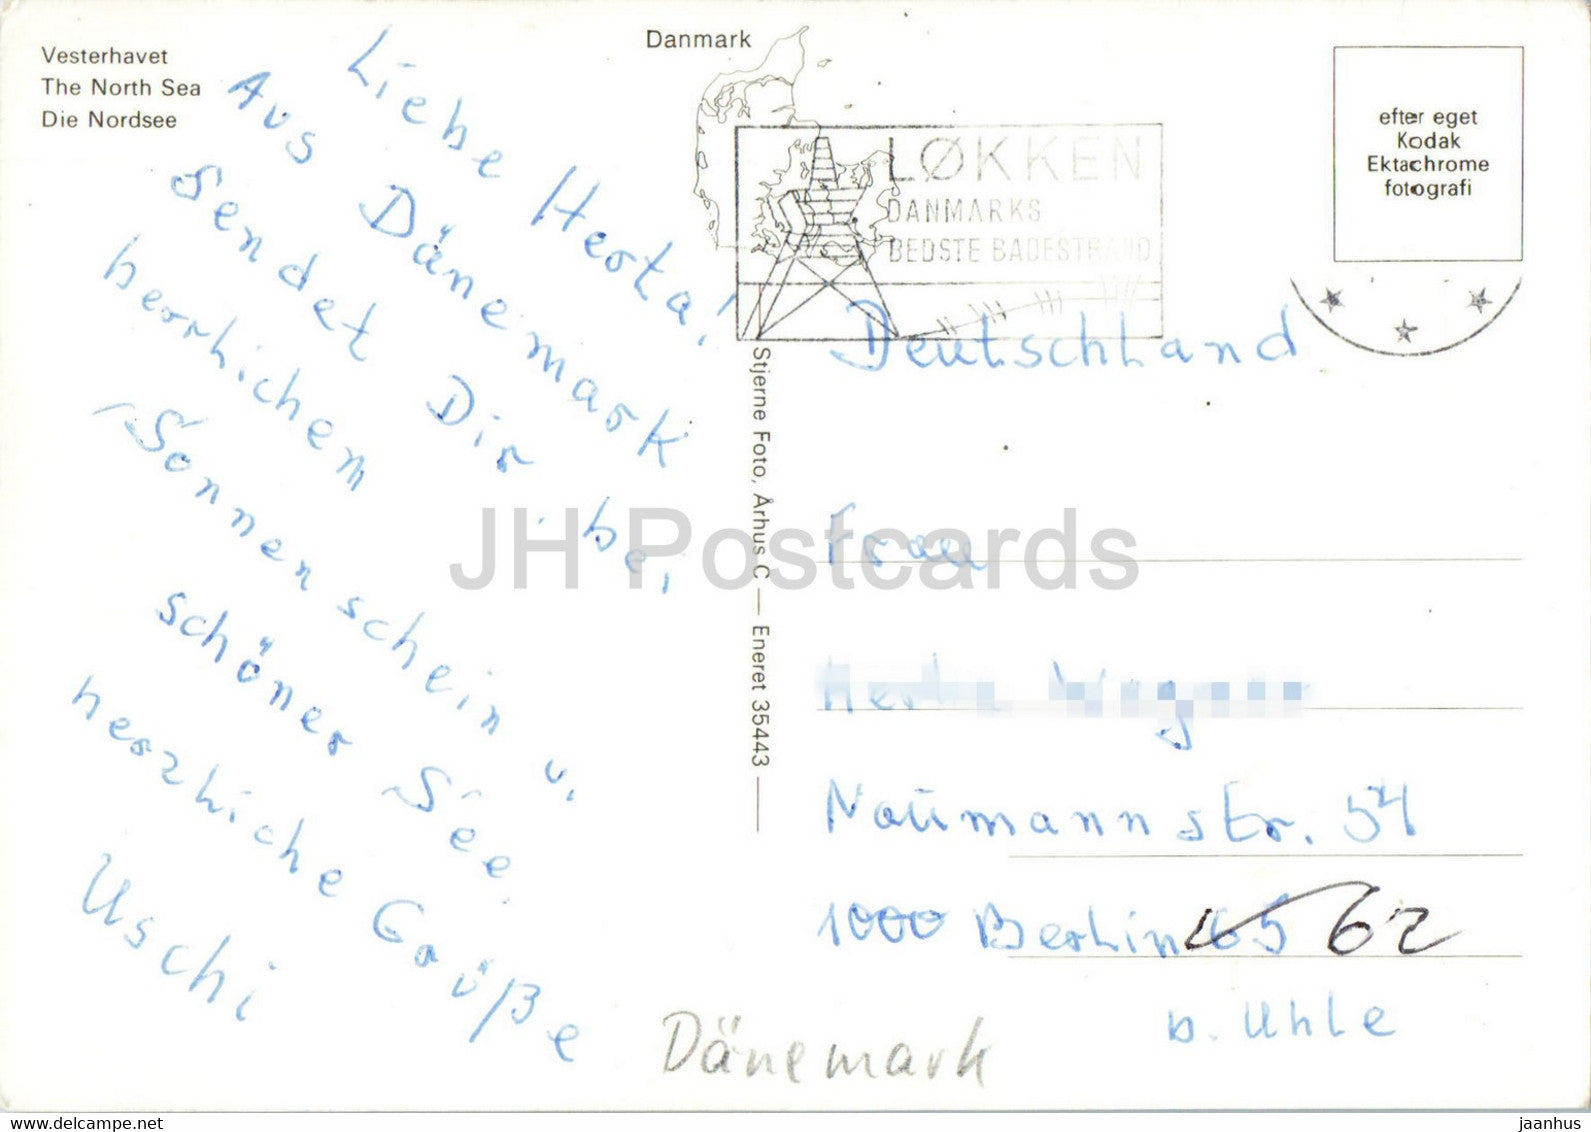 Vesterhavet
The North Sea
Die Nordsee
Danmark
efter eget
Kodak
Ektachrome
fotografi
LØKKEN
DANMARKS
BEDSTE BADESTRAND
Liebe Herta!
Aus Dänemark
sendet Dir bei
herrlichem
Sonnenschein u.
schöner See.
herzliche Grüße
Uschi
Stjerne Foto, Århus C — Eneret 35443
Deutschland
Frau
Naumannstr. 54
1000 Berlin 65 62
b. Uhle
Dänemark
JH Postcards
www.delcampe.net
jaanhus